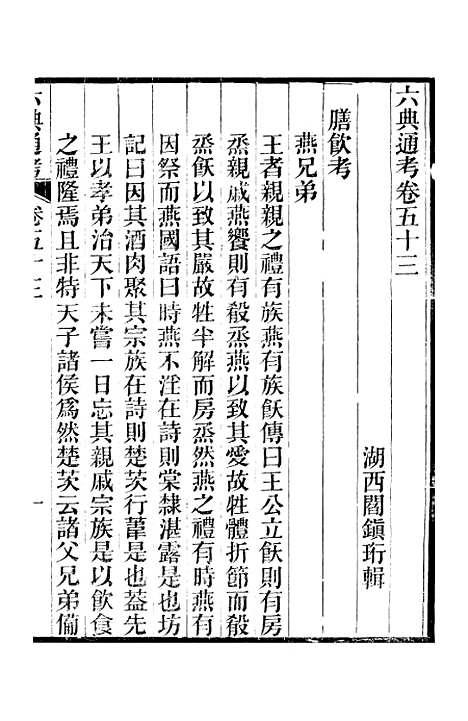 六典通考卷五十三
湖西閻鎮珩輯
膳飲考
燕兄弟
王者親親之禮有族燕有族飫傳曰王公立飫則有房
烝親戚燕饗則有殽烝燕以致其愛故牲體折節而殽
烝飫以致其嚴故牲半解而房烝然燕之禮有時燕有
因祭而燕國語曰時燕不淫在詩則棠隸湛露是也坊
記曰因其酒肉聚其宗族在詩則楚茨行葦是也葢先
王以孝弟治天下未嘗一日忘其親戚宗族是以飲食
之禮隆焉且非特天子諸侯爲然楚茨云諸父兄弟備
六典通考
卷五十三
一